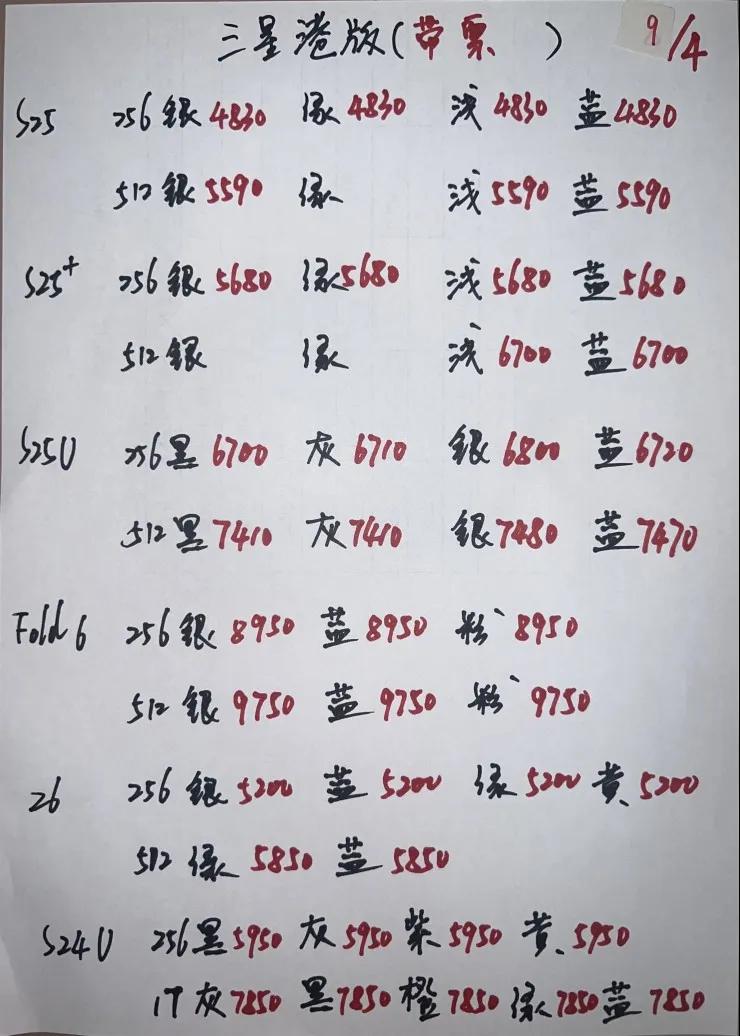 三星港版(带票 ) 9/4
S25 256 銀 4830 绿 4830 浅 4830 蓝 4830
512 銀 5590 绿 浅 5590 蓝 5590
S25+ 256 銀 5680 绿 5680 浅 5680 蓝 5680
512 銀 绿 浅 6700 蓝 6700
S25U 256 黑 6700 灰 6710 銀 6800 蓝 6720
512 黑 7410 灰 7410 銀 7480 蓝 7470
Fold 6 256 銀 8950 蓝 8950 粉 8950
512 銀 9750 蓝 9750 粉 9750
Z6 256 銀 5200 蓝 5200 绿 5200 黄 5200
512 绿 5850 蓝 5850
S24U 256 黑 5950 灰 5950 紫 5950 黄 5950
1T 灰 7850 黑 7850 橙 7850 绿 7850 蓝 7850